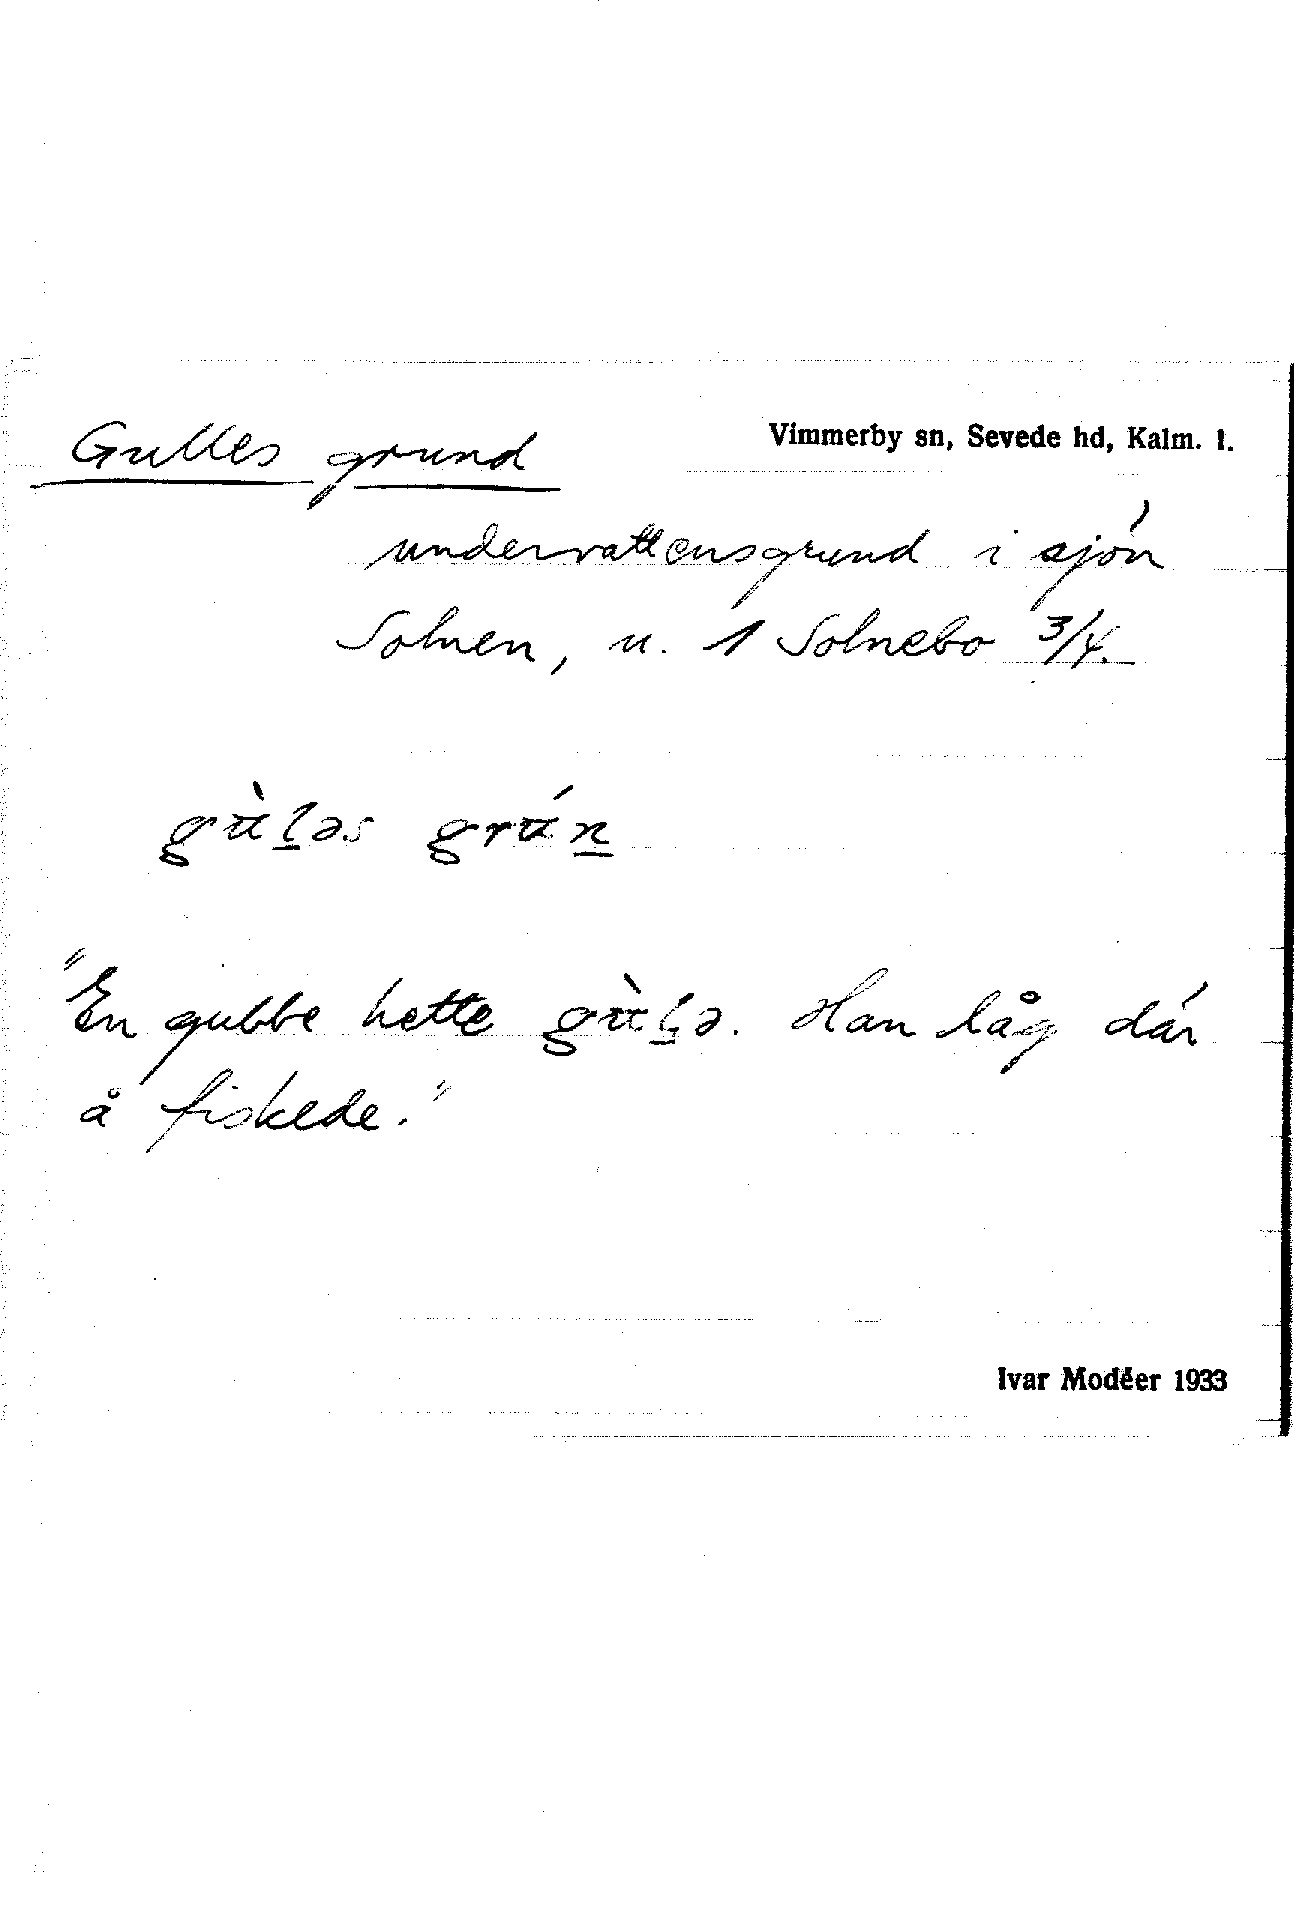 Gulles grund
Vimmerby sn, Sevede hd, Kalm. l.
undervattensgrund i sjön
Solnen, u. 1 Solnebo 3/4.
gùl̲əs grún̲
"En gubbe hette gùl̲ə. Han låg där
å fiskede."
Ivar Modéer 1933